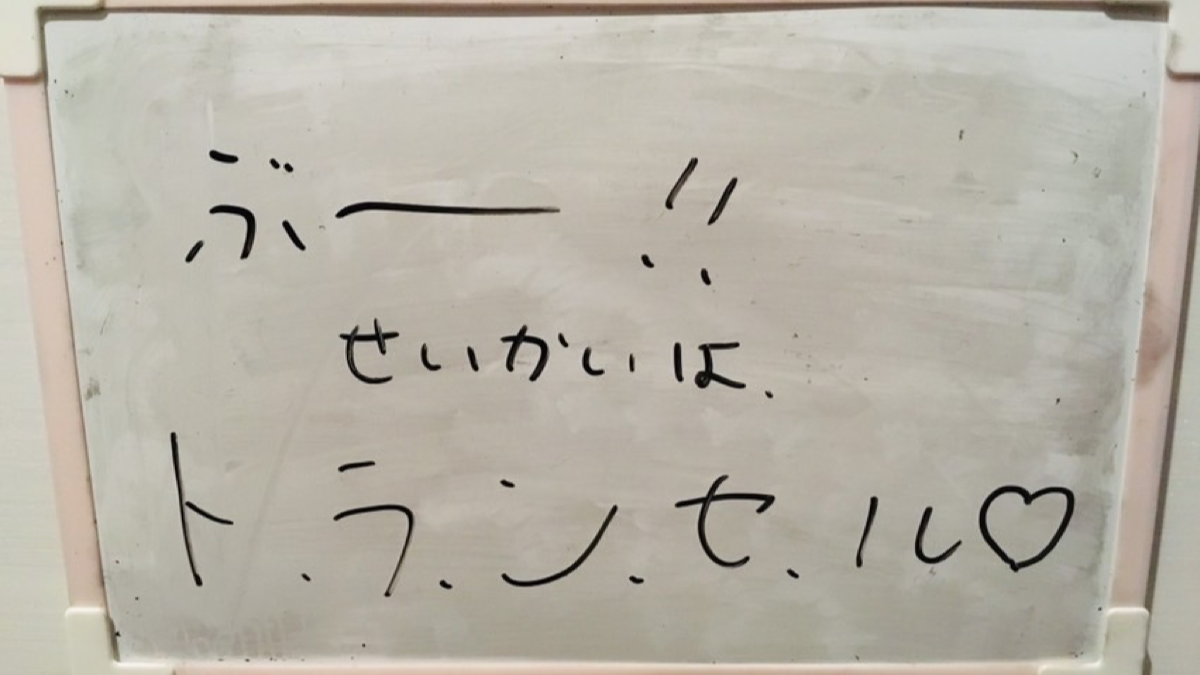 ぶー!!
せいかいは.
ト.ラ.ン.セ.ル♡